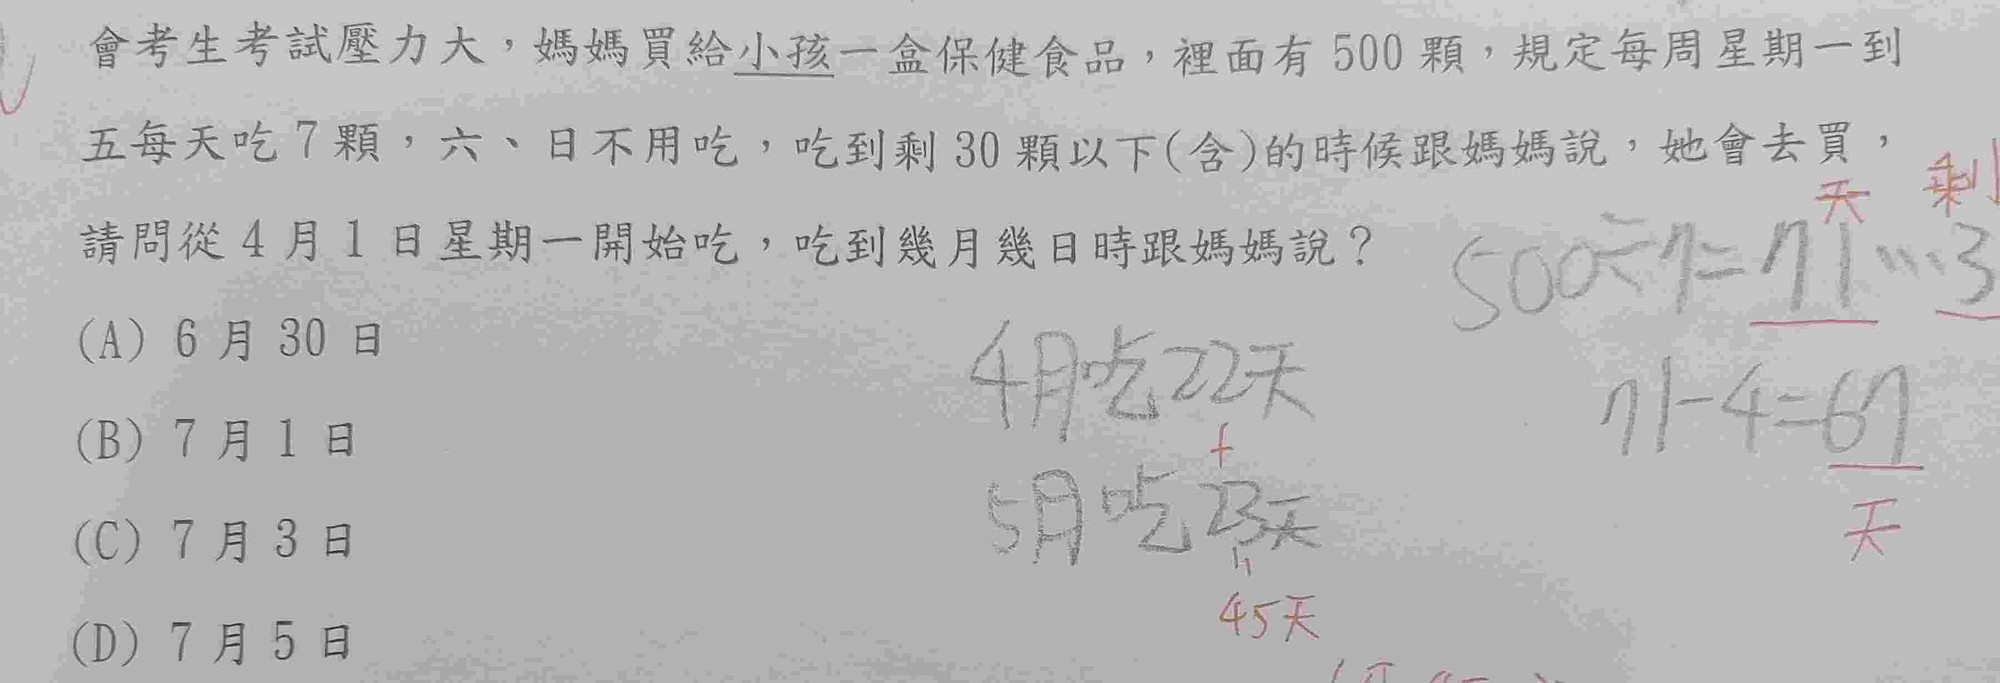 會考生考試壓力大，媽媽買給小孩一盒保健食品，裡面有 500 顆，規定每周星期一到
五每天吃 7 顆，六、日不用吃，吃到剩 30 顆以下(含)的時候跟媽媽說，她會去買，
請問從 4 月 1 日星期一開始吃，吃到幾月幾日時跟媽媽說？
天 剩
500÷7=71…3
(A) 6 月 30 日
4月吃22天
71-4=67
天
(B) 7 月 1 日
+
5月吃23天
(C) 7 月 3 日
=
45天
(D) 7 月 5 日